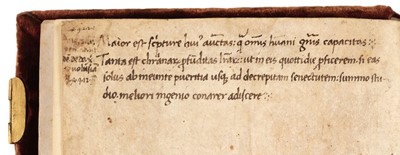 Maior est scripture huiꝰ auctas: q̄ omīs hūani gn̄is capacitas:
Tanta est chr̄ianaꝝ ꝓfūditas lr̄aꝝ: ut in eis quottidie ꝓficerem. si eas
solus ab ineunte pueritia usqꝫ ad decrepitam senectutem: summo stu-
dio, meliori ingenio conarer adiscere: